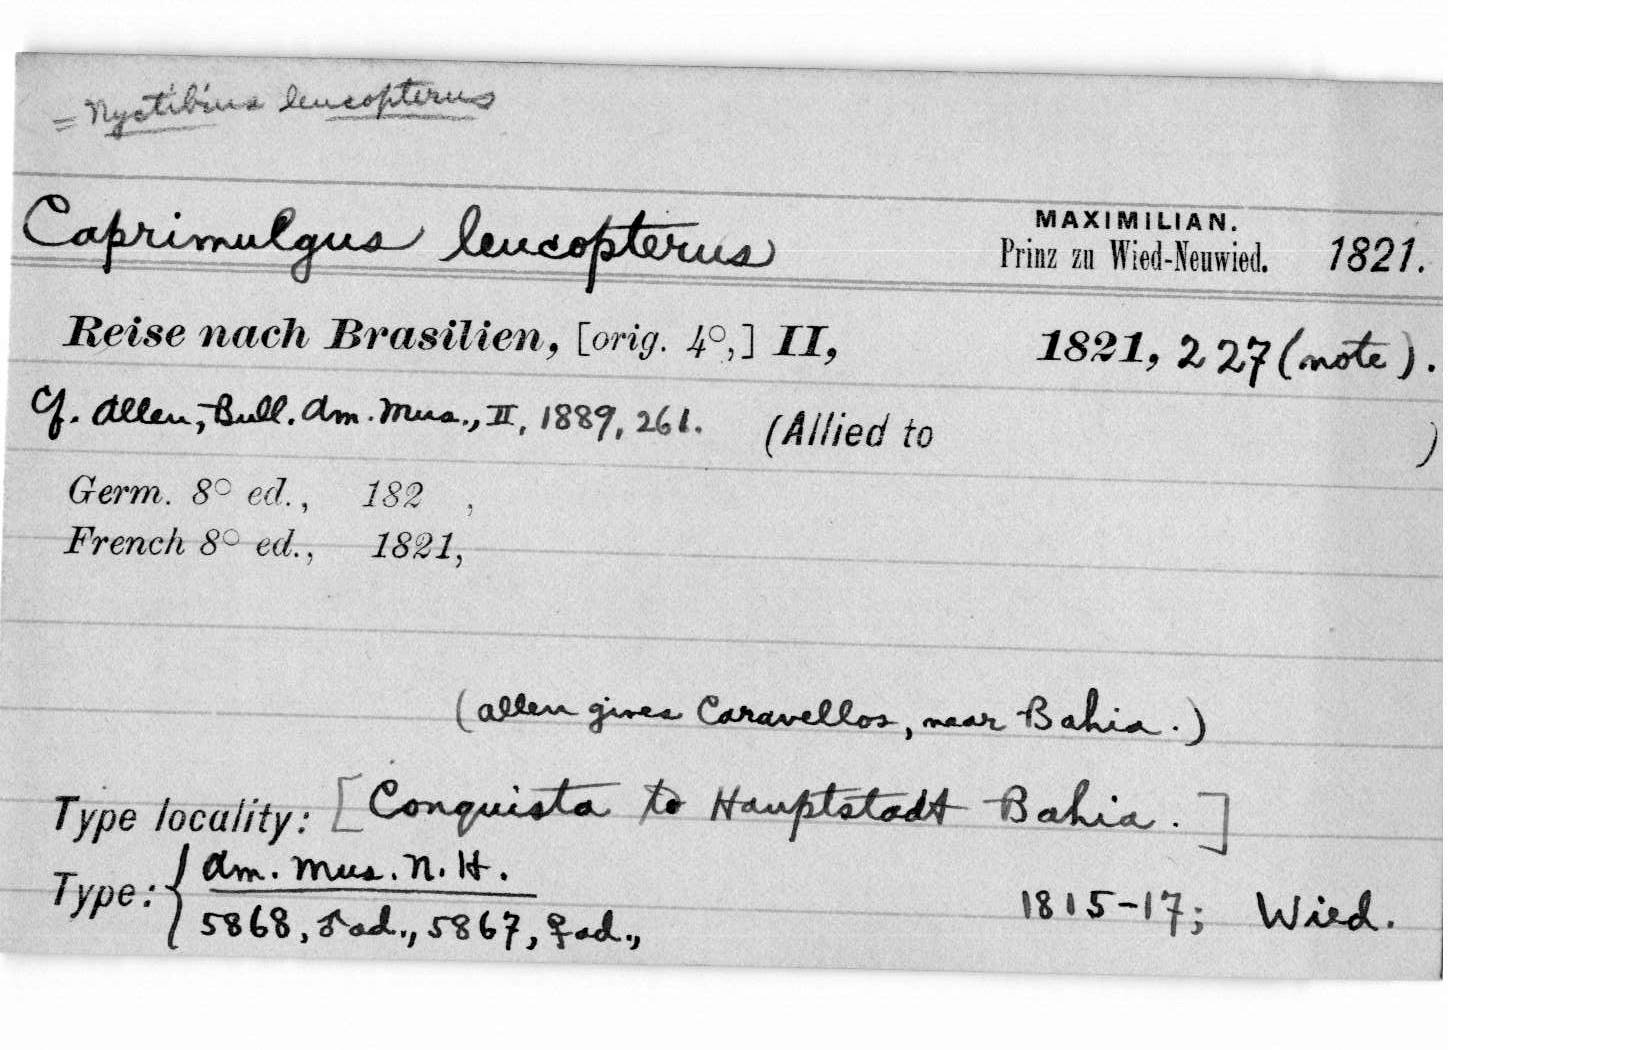 = Nyctibius leucopterus
Caprimulgus leucopterus MAXIMILIAN. Prinz zu Wied-Neuwied. 1821.
Reise nach Brasilien, [orig. 4°,] II, 1821, 227 (note).
Cf. Allen, Bull. Am. Mus., II, 1889, 261. (Allied to )
Germ. 8° ed., 182 ,
French 8° ed., 1821,
(Allen gives Caravellos, near Bahia.)
Type locality: [Conquista to Hauptstadt Bahia.]
Type: { Am. Mus. N. H.
5868, ♂ ad., 5867, ♀ ad., 1815-17; Wied.